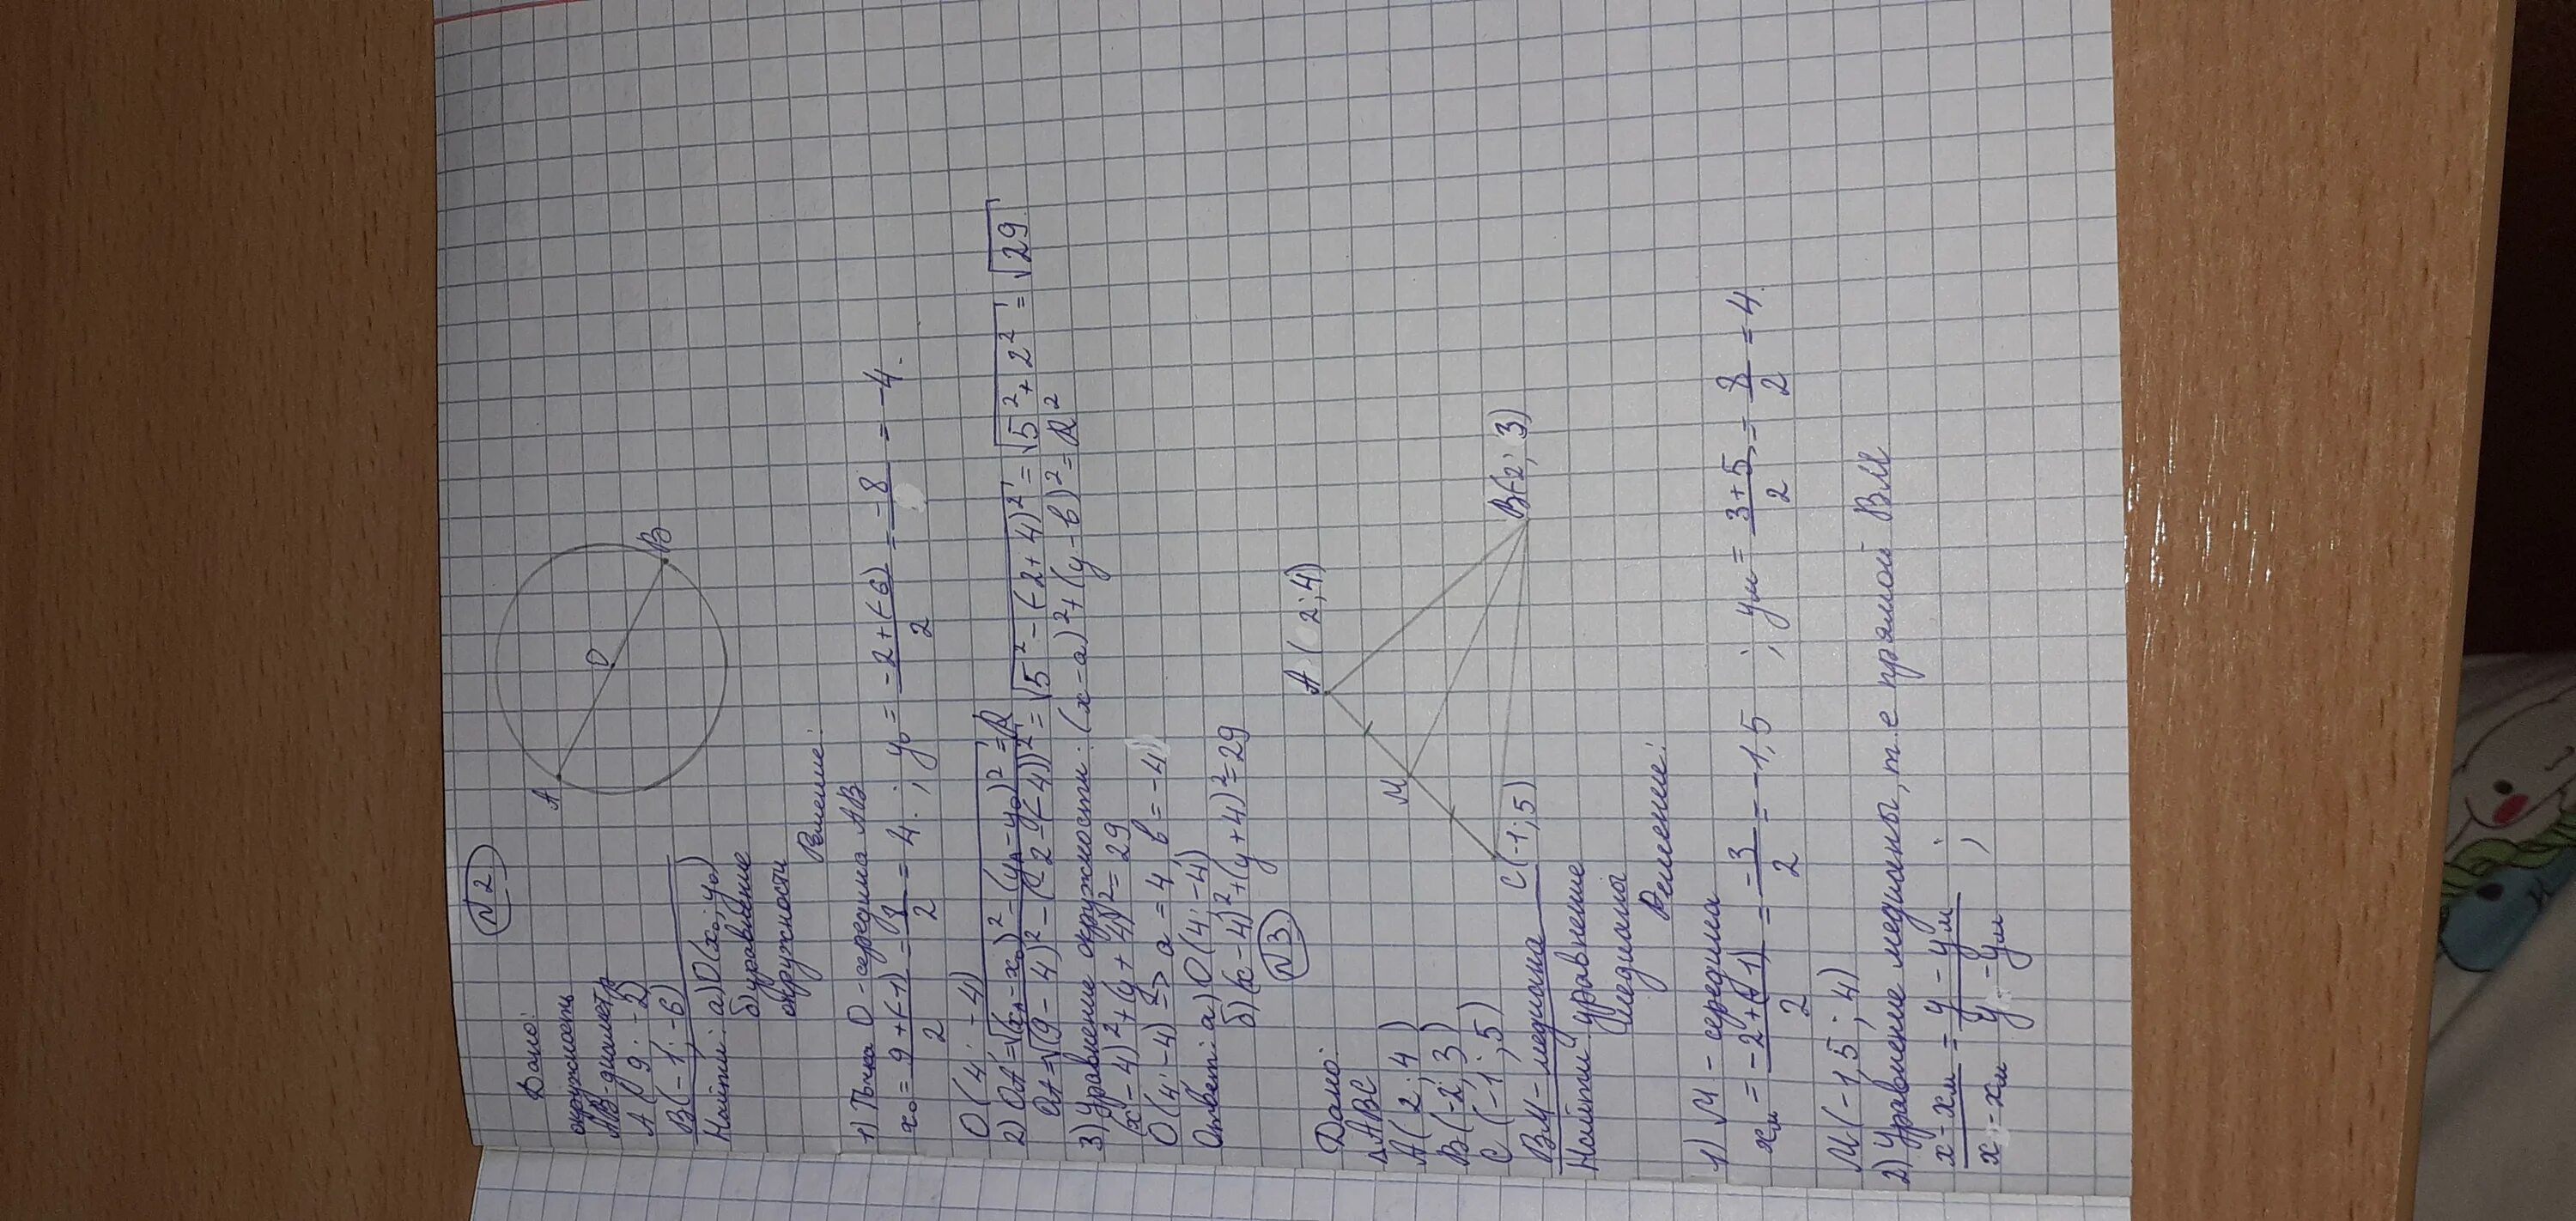 №2
Дано:
окружность
AB - диаметр
A(9; -2)
B(-1; -6)
Найти: а) O(x₀; y₀)
б) уравнение
окружности
A
O
B
Решение:
1) Точка O - середина AB
x₀ = (9+(-1))/2 = 8/2 = 4. ; y₀ = (-2+(-6))/2 = -8/2 = -4.
O(4; -4)
2) OA = √((x_A - x₀)² - (y_A - y₀)²) = R
OA = √((9-4)² - (-2-(-4))²) = √(5² - (-2+4)²) = √(5² + 2²) = √29
3) Уравнение окружности: (x-a)² + (y-b)² = R²
(x-4)² + (y+4)² = 29
O(4; -4) => a = 4, b = -4
Ответ: а) O(4; -4)
б) (x-4)² + (y+4)² = 29
№3
Дано:
△ABC
A(2; 4)
B(-2; 3)
C(-1; 5)
BM - медиана
Найти: уравнение
медианы
A(2; 4)
M
B(-2; 3)
C(-1; 5)
Решение:
1) M - середина
x_м = (-2+(-1))/2 = -3/2 = -1,5 ; y_м = (3+5)/2 = 8/2 = 4.
M(-1,5; 4)
2) Уравнение медианы, т.е прямой BM
(x - x_м)/(x - x_м) = (y - y_м)/(y - y_м) ;